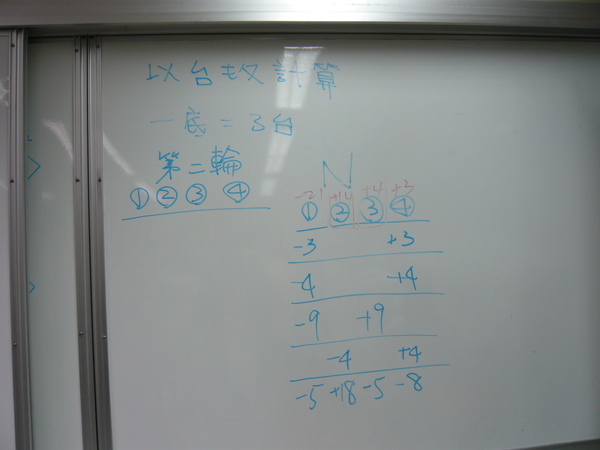 以台數計算
一底=3台
第二輪
① ② ③ ④
N
-21 +14 +4 +3
① ② ③ ④
-3 +3
-4 +4
-9 +9
-4 +4
-5 +18 -5 -8